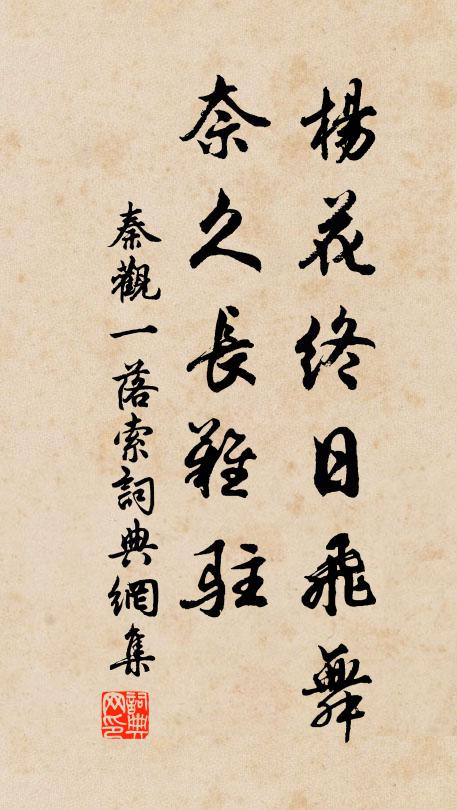 楊花終日飛舞
奈久長難駐
秦觀一落索詞典網集
詞典
网印